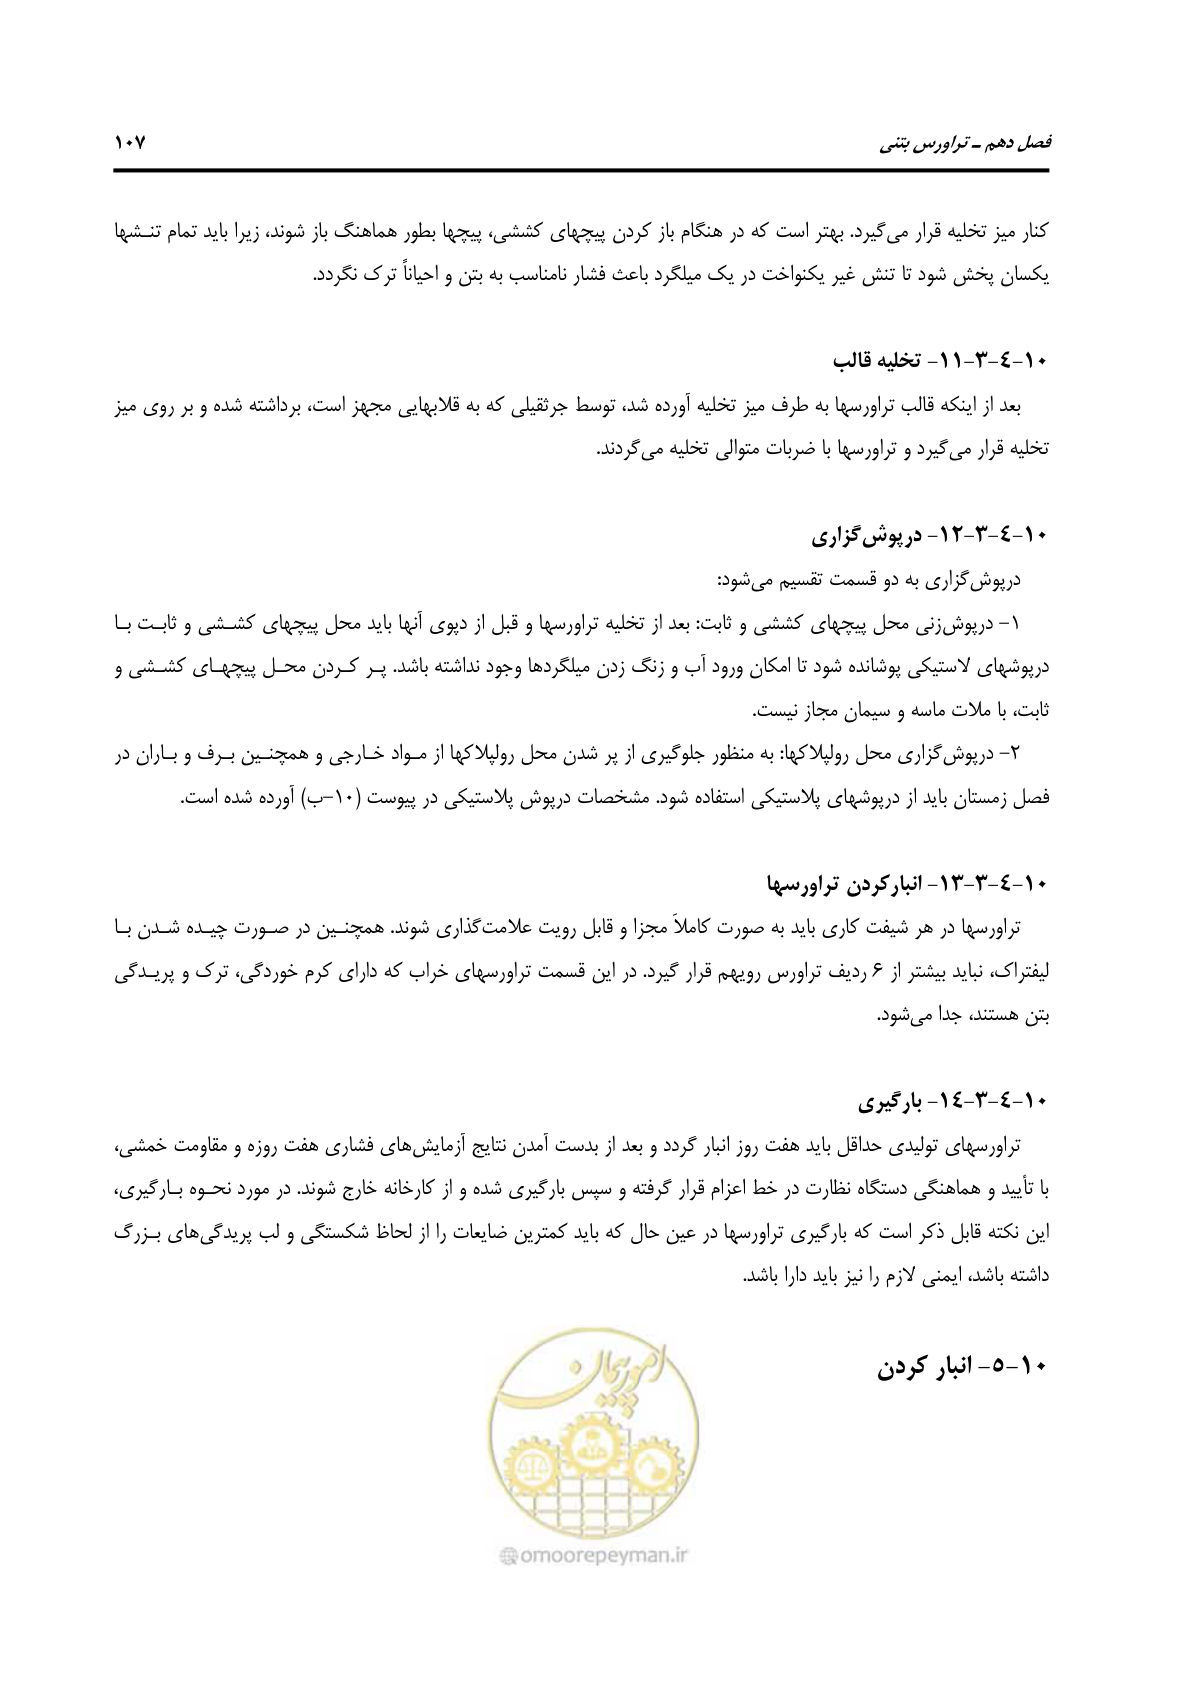 فصل دهم ـ تراورس بتنی
۱۰۷
کنار میز تخلیه قرار می‌گیرد. بهتر است که در هنگام باز کردن پیچهای کششی، پیچها بطور هماهنگ باز شوند، زیرا باید تمام تنـشها
یکسان پخش شود تا تنش غیر یکنواخت در یک میلگرد باعث فشار نامناسب به بتن و احیاناً ترک نگردد.
۱۰-۴-۳-۱۱- تخلیه قالب
بعد از اینکه قالب تراورسها به طرف میز تخلیه آورده شد، توسط جرثقیلی که به قلابهایی مجهز است، برداشته شده و بر روی میز
تخلیه قرار می‌گیرد و تراورسها با ضربات متوالی تخلیه می‌گردند.
۱۰-۴-۳-۱۲- درپوش‌گزاری
درپوش‌گزاری به دو قسمت تقسیم می‌شود:
۱- درپوش‌زنی محل پیچهای کششی و ثابت: بعد از تخلیه تراورسها و قبل از دپوی آنها باید محل پیچهای کشـشی و ثابـت بـا
درپوشهای لاستیکی پوشانده شود تا امکان ورود آب و زنگ زدن میلگردها وجود نداشته باشد. پـر کـردن محـل پیچهـای کشـشی و
ثابت، با ملات ماسه و سیمان مجاز نیست.
۲- درپوش‌گزاری محل رولپلاکها: به منظور جلوگیری از پر شدن محل رولپلاکها از مـواد خـارجی و همچنـین بـرف و بـاران در
فصل زمستان باید از درپوشهای پلاستیکی استفاده شود. مشخصات درپوش پلاستیکی در پیوست (۱۰-ب) آورده شده است.
۱۰-۴-۳-۱۳- انبارکردن تراورسها
تراورسها در هر شیفت کاری باید به صورت کاملاً مجزا و قابل رویت علامت‌گذاری شوند. همچنـین در صـورت چیـده شـدن بـا
لیفتراک، نباید بیشتر از ۶ ردیف تراورس رویهم قرار گیرد. در این قسمت تراورسهای خراب که دارای کرم خوردگی، ترک و پریـدگی
بتن هستند، جدا می‌شود.
۱۰-۴-۳-۱۴- بارگیری
تراورسهای تولیدی حداقل باید هفت روز انبار گردد و بعد از بدست آمدن نتایج آزمایش‌های فشاری هفت روزه و مقاومت خمشی،
با تأیید و هماهنگی دستگاه نظارت در خط اعزام قرار گرفته و سپس بارگیری شده و از کارخانه خارج شوند. در مورد نحـوه بـارگیری،
این نکته قابل ذکر است که بارگیری تراورسها در عین حال که باید کمترین ضایعات را از لحاظ شکستگی و لب پریدگی‌های بـزرگ
داشته باشد، ایمنی لازم را نیز باید دارا باشد.
۱۰-۵- انبار کردن
امور پیمان
omoorepeyman.ir